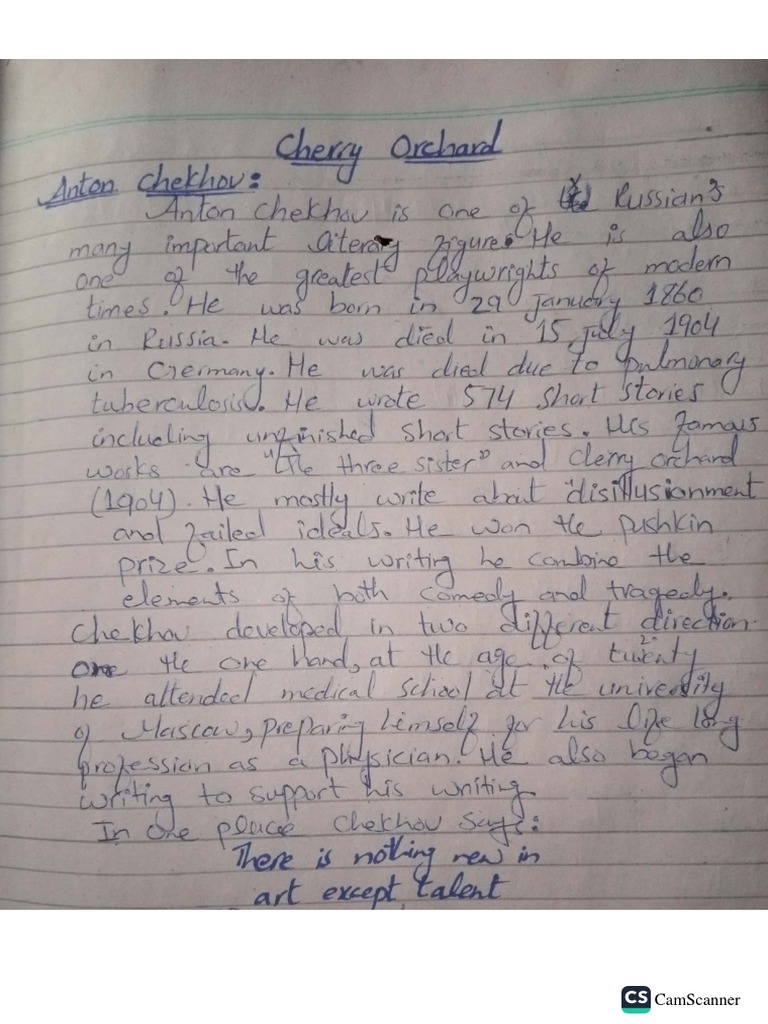 Cherry Orchard
Anton Chekhov:
Anton Chekhov is one of Russian's
many important literary figure. He is also
one of the greatest playwrights of modern
times. He was born in 29 January 1860
in Russia. He was died in 15 July 1904
in Germany. He was died due to pulmonary
tuberculosis. He wrote 574 short stories
including unfinished short stories. His famous
works are "The three sister" and Cherry orchard
(1904). He mostly write about disillusionment
and failed ideals. He won the pushkin
prize. In his writing he combine the
elements of both comedy and tragedy.
Chekhov developed in two different direction.
One the one hand, at the age of twenty
he attended medical school at the university
of Mascow, preparing himself for his life long
profession as a physician. He also began
writing to support his writing.
In one place Chekhov says:
There is nothing new in
art except talent
CS CamScanner